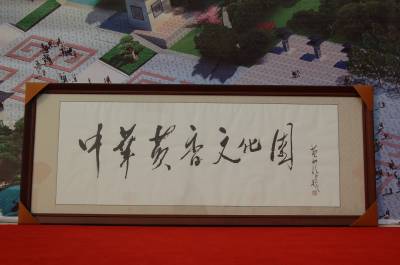 中華黄香文化園